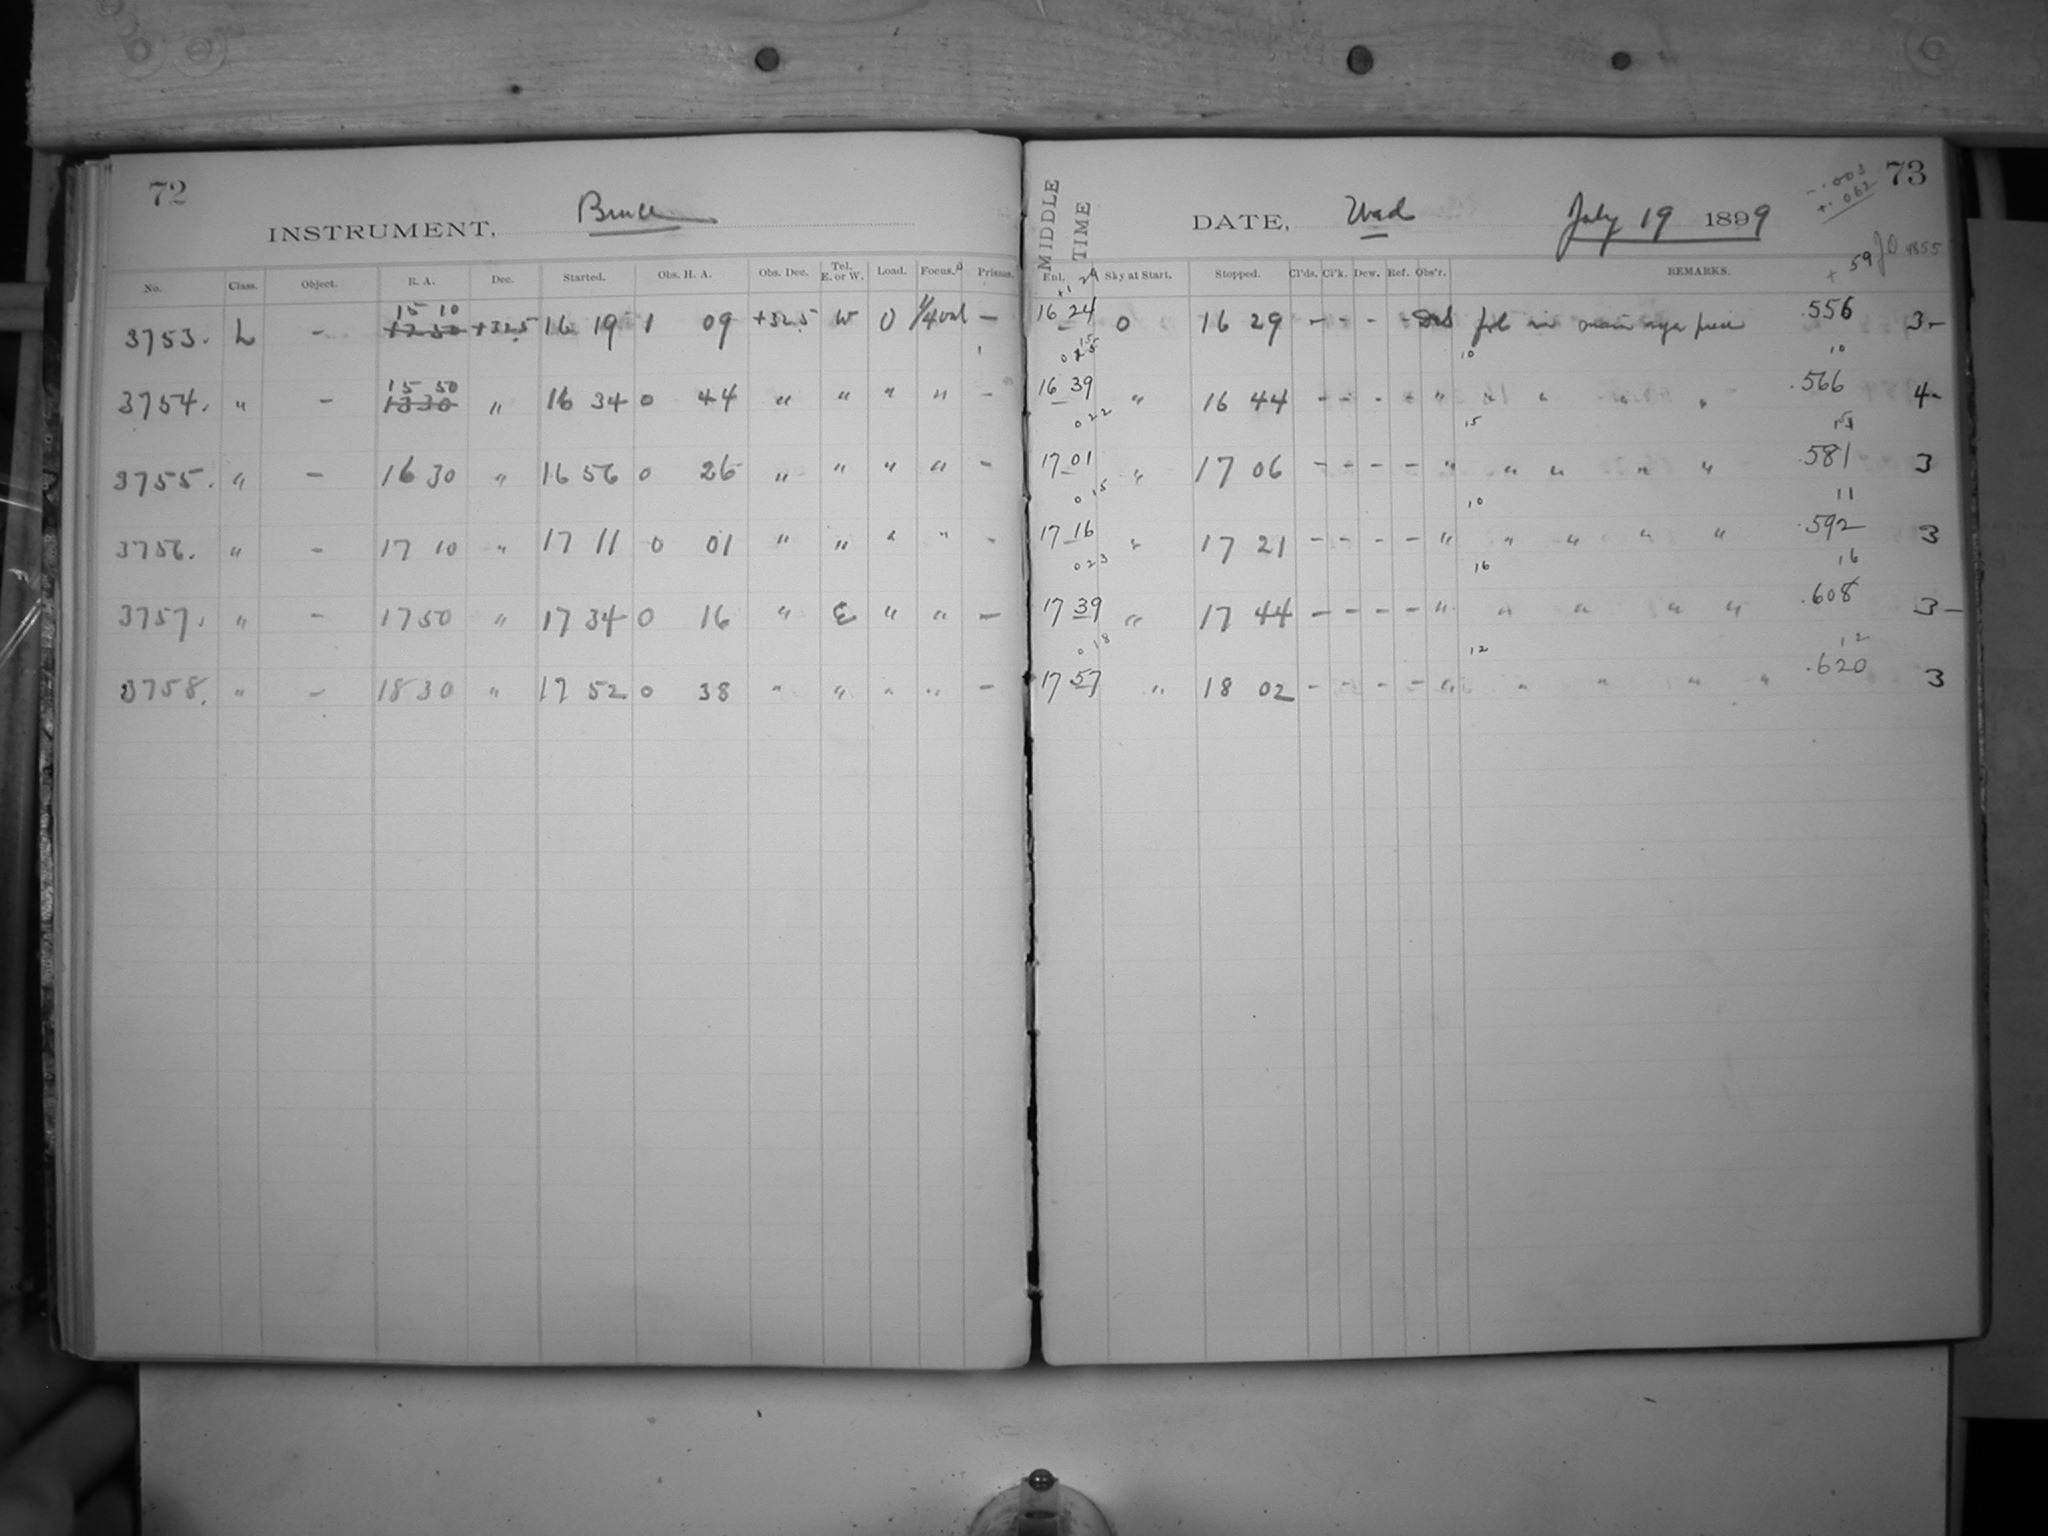 72
INSTRUMENT, Bruce
No. Class. Object. R. A. Dec. Started. Obs. H. A. Obs. Dec. Tel. E. or W. Load. Focus. Prisms.
15 10
3753. L - 12 30 +32.5 16 19 1 09 +32.5 W 0 -
15 50
3754. " - 13 30 " 16 34 0 44 " " " " -
3755. " - 16 30 " 16 56 0 26 " " " " -
3756. " - 17 10 " 17 11 0 01 " " " " -
3757. " - 17 50 " 17 34 0 16 " E " " -
3758. " - 18 30 " 17 52 0 38 " " " " -
73
-.003
+.062
MIDDLE TIME
DATE, Wed July 19 1899
+ 59 4855
Enl. Sky at Start. Stopped. Cl'ds. Cl'k. Dew. Ref. Obs'r. REMARKS.
16 24 0 16 29 - - - - in main .556 3-
0 15 10 10
16 39 " 16 44 - - - - " " " " " .566 4-
0 22 15 15
17 01 " 17 06 - - - - " " " " " .581 3
0 15 10 11
17 16 " 17 21 - - - - " " " " " .592 3
0 23 16 16
17 39 " 17 44 - - - - " " " " " .608 3-
0 18 12 12
17 57 " 18 02 - - - - " " " " " .620 3